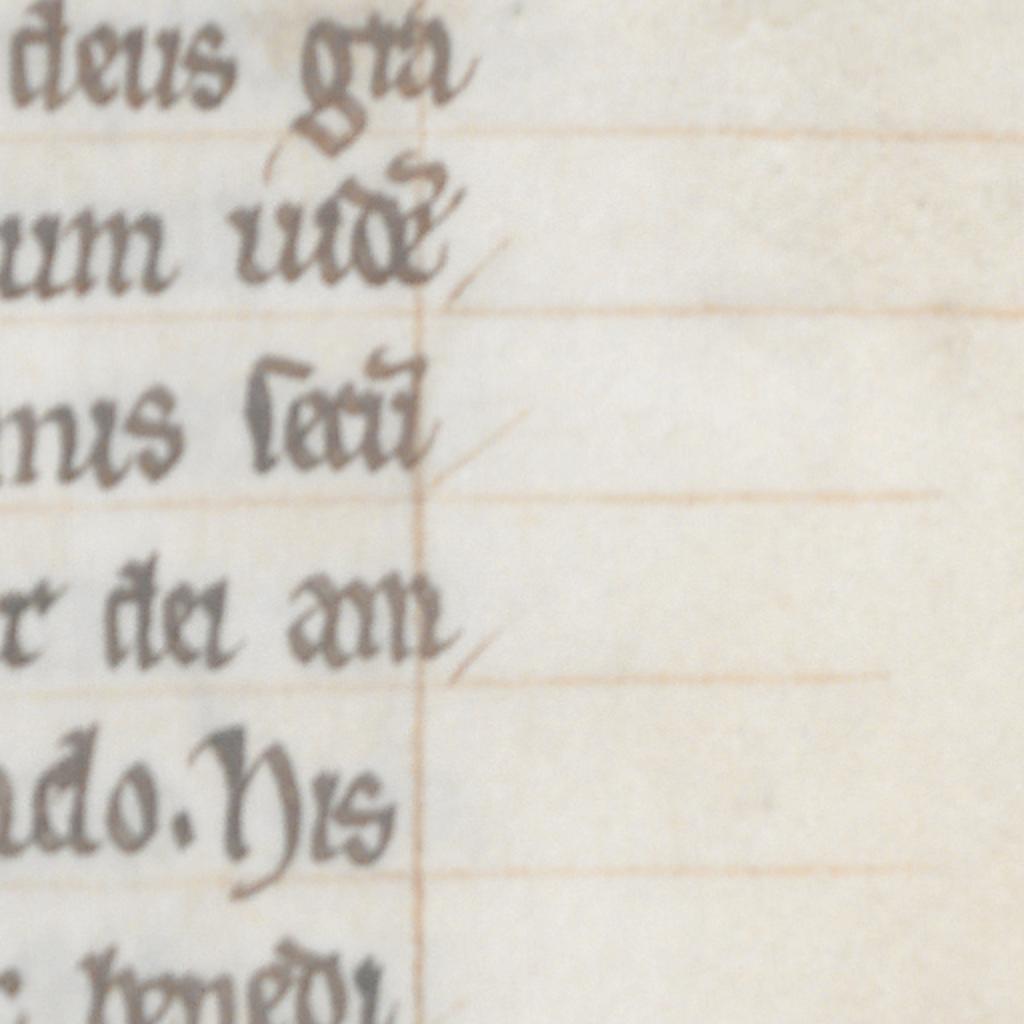 deus gra
um uidē
mus secū
r dei am
ndo. His
benedi